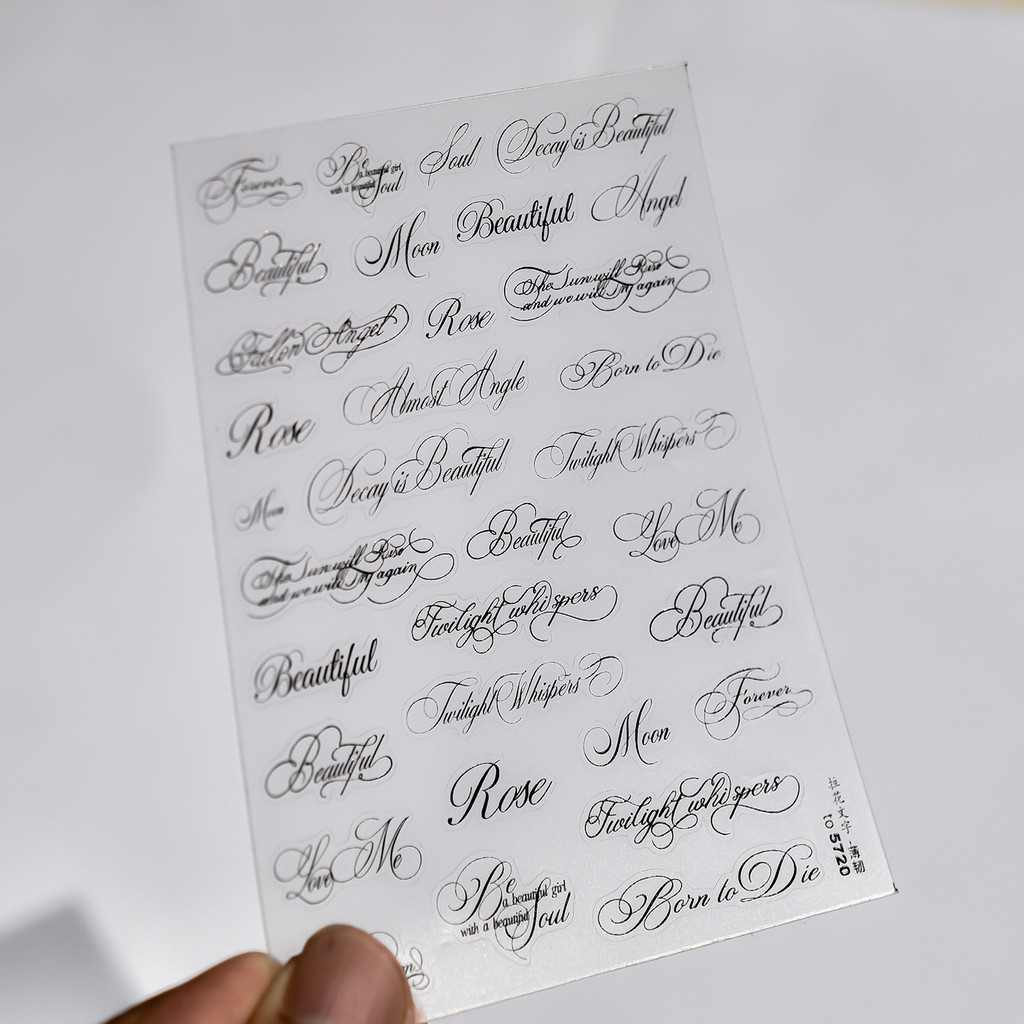 Forever
Be
a beautiful girl
with a beautiful
Soul
Soul
Decay is Beautiful
Beautiful
Moon
Beautiful
Angel
Fallen Angel
Rose
The Sun will Rise
and we will try again
Rose
Almost Angle
Born to Die
Moon
Decay is Beautiful
Twilight Whispers
The Sun will Rise
and we will try again
Beautiful
Love Me
Beautiful
Twilight whispers
Beautiful
Beautiful
Twilight Whispers
Moon
Forever
Love Me
Rose
Twilight whispers
Be
a beautiful girl
with a beautiful
Soul
Born to Die
拉花文字-薄韧
to 5720